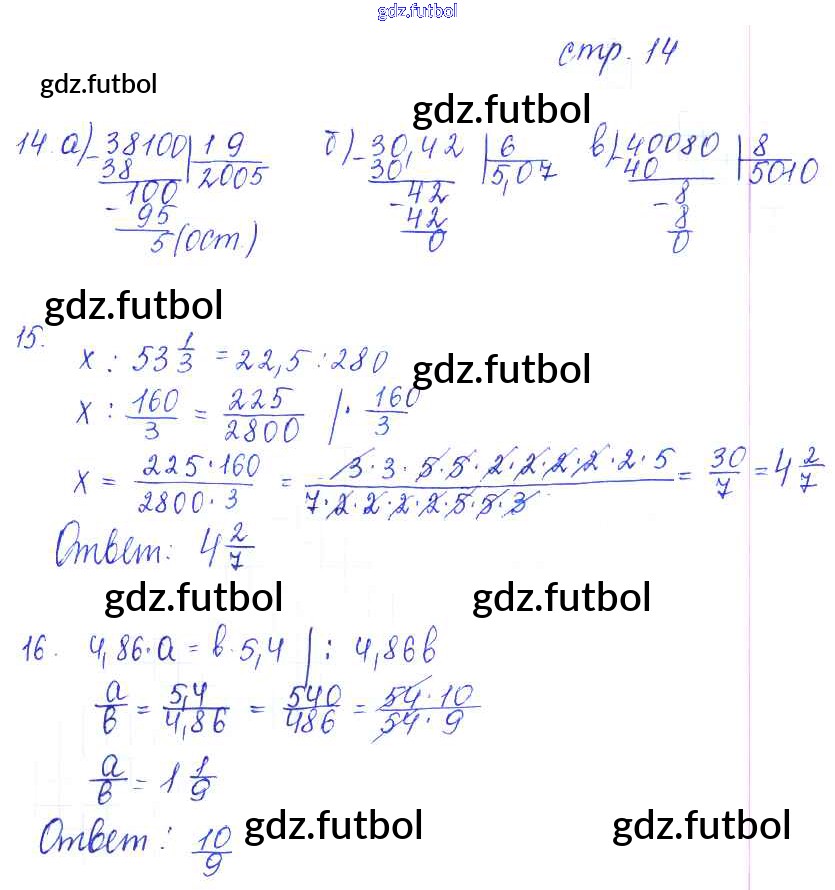 gdz.futbol
стр. 14
gdz.futbol
gdz.futbol
14. а) 38100 | 19
38 2005
100
- 95
5 (ост.)
б) 30,42 | 6
30 5,07
42
- 42
0
в) 40080 | 8
40 5010
- 8
8
0
gdz.futbol
15.
x : 53 1/3 = 22,5 : 280
gdz.futbol
x : 160/3 = 225/2800 | · 160/3
x = 225·160/2800·3 = 3·3·5·5·2·2·2·2·2·5/7·2·2·2·2·5·5·3 = 30/7 = 4 2/7
Ответ: 4 2/7
gdz.futbol gdz.futbol
16. 4,86·a = в·5,4 | : 4,86в
a/в = 5,4/4,86 = 540/486 = 54·10/54·9
a/в = 1 1/9
Ответ: 10/9
gdz.futbol gdz.futbol